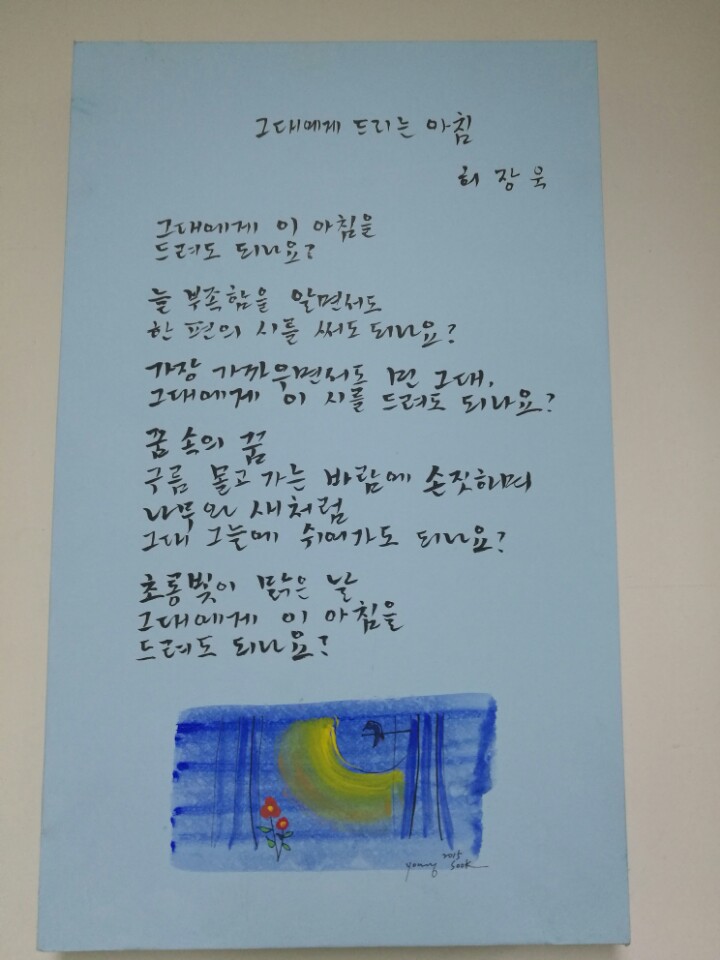 그대에게 드리는 아침
허 장 욱
그대에게 이 아침을
드려도 되나요?
늘 부족함을 알면서도
한 편의 시를 써도 되나요?
가장 가까우면서도 먼 그대,
그대에게 이 시를 드려도 되나요?
꿈 속의 꿈
구름 몰고 가는 바람에 손짓하며
나무와 새처럼
그대 그늘에 쉬어가도 되나요?
초롱빛이 맑은 날
그대에게 이 아침을
드려도 되나요?
2015
young Sook